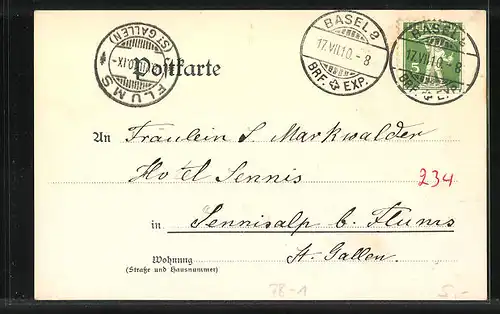 BASEL 2
17.VII.10.-8
BRF. EXP.
BASEL 2
17.VII.10.-8
BRF. EXP.
FLUMS
(ST GALLEN)
Postkarte
An Fräulein S. Markwalder
Hotel Sennis
234
in Sennisalp b. Flums
Wohnung St. Gallen.
(Straße und Hausnummer)
78-1
5.-